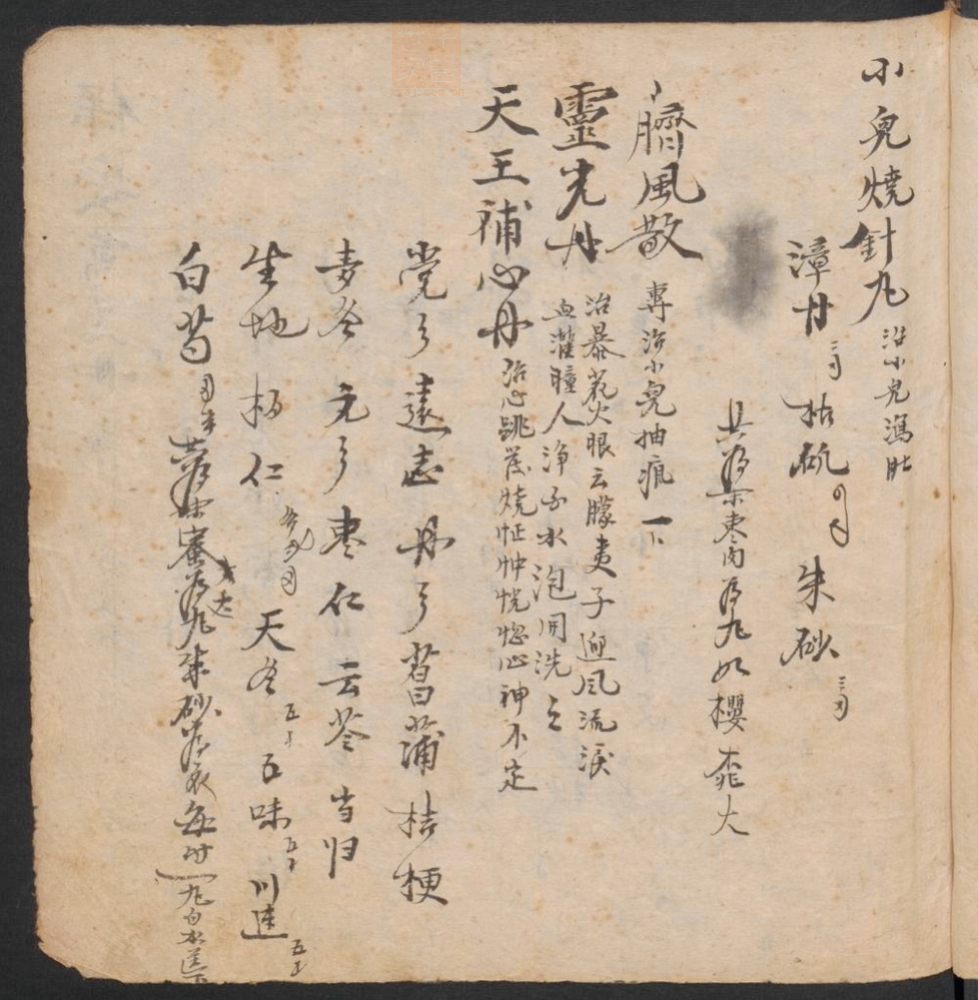 小兒燒針丸 治小兒瀉肚
漳丹 三 枯矾 朱砂 三
共為末枣肉為丸如櫻桃大
臍風散 專治小兒抽瘋一下
靈光丹 治暴花火眼云朦 子迎風流淚
血灌瞳人淨子水泡用洗之
天王補心丹 治心跳發燒怔忡恍惚心神不定
党参 遠志 丹参 菖蒲 桔梗
麦冬 元参 枣仁 云苓 当归
生地 柏仁 天冬 五 五味 五 川連 五
白芍 共為末蜜為丸朱砂為衣每 一丸白水送下